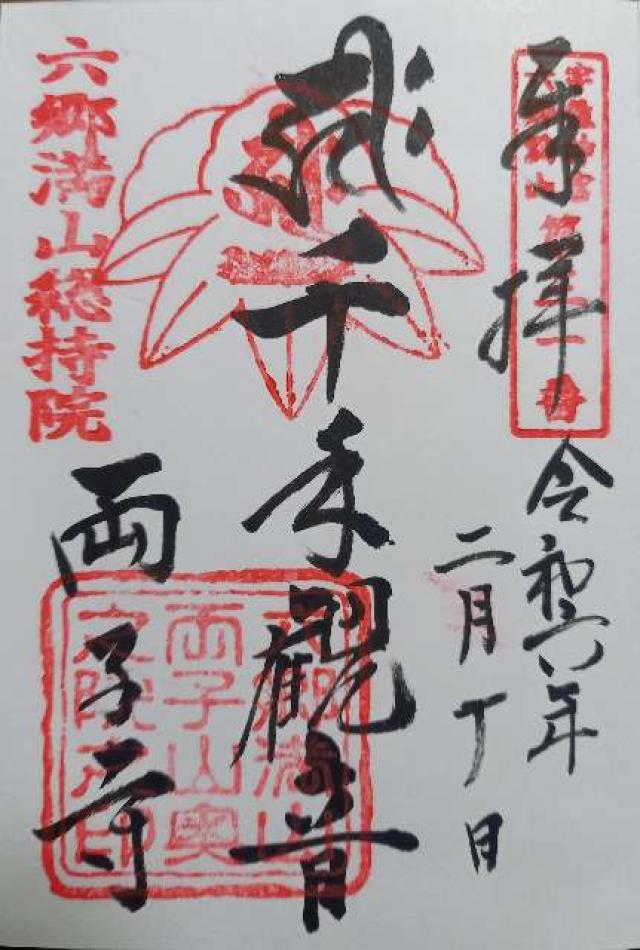 奉拝
令和六年
二月
日
千手觀音
六郷満山総持院
両子寺
六郷満山
両子山奥
之院
印